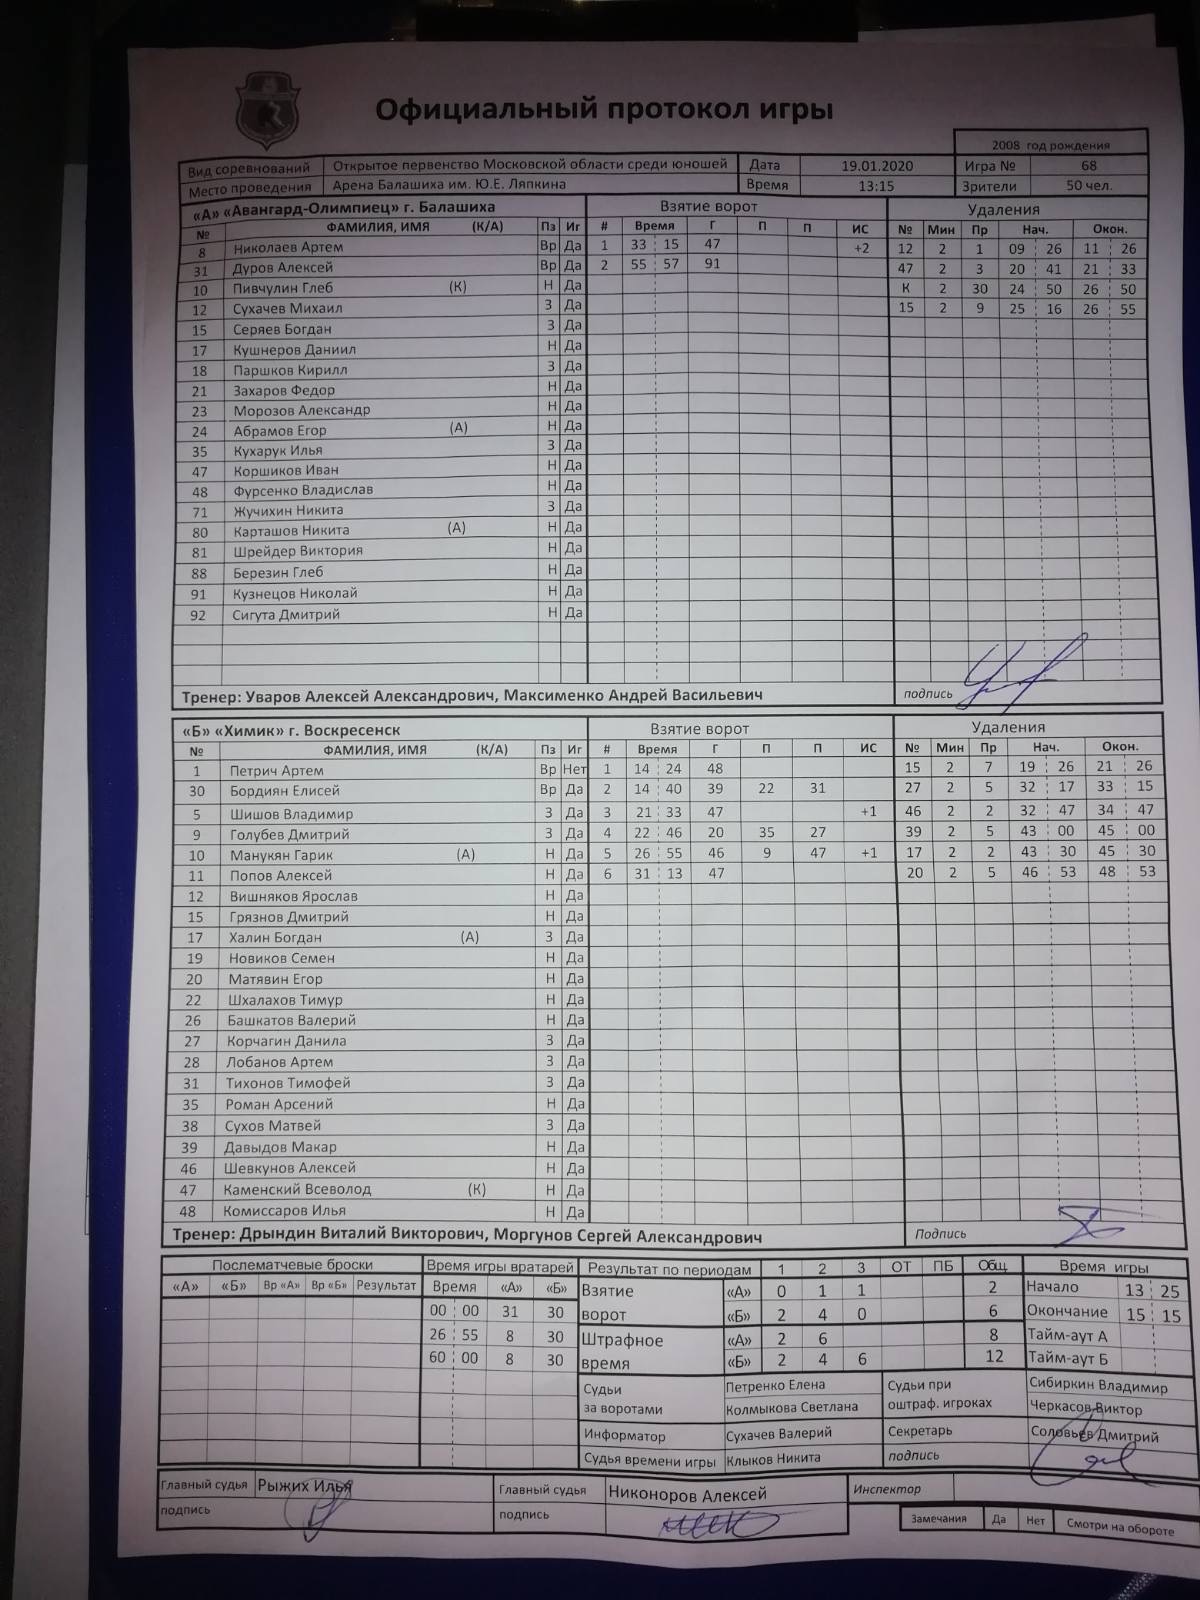 Официальный протокол игры
2008 год рождения
Вид соревнований Открытое первенство Московской области среди юношей Дата 19.01.2020 Игра № 68
Место проведения Арена Балашиха им. Ю.Е. Ляпкина Время 13:15 Зрители 50 чел.
«А» «Авангард-Олимпиец» г. Балашиха Взятие ворот Удаления
№ ФАМИЛИЯ, ИМЯ (К/А) Пз Иг # Время Г П П ИС № Мин Пр Нач. Окон.
8 Николаев Артем Вр Да 1 33 15 47 +2 12 2 1 09 26 11 26
31 Дуров Алексей Вр Да 2 55 57 91 47 2 3 20 41 21 33
10 Пивчулин Глеб (К) Н Да К 2 30 24 50 26 50
12 Сухачев Михаил З Да 15 2 9 25 16 26 55
15 Серяев Богдан З Да
17 Кушнеров Даниил Н Да
18 Паршков Кирилл З Да
21 Захаров Федор Н Да
23 Морозов Александр Н Да
24 Абрамов Егор (А) Н Да
35 Кухарук Илья З Да
47 Коршиков Иван Н Да
48 Фурсенко Владислав Н Да
71 Жучихин Никита З Да
80 Карташов Никита (А) Н Да
81 Шрейдер Виктория Н Да
88 Березин Глеб Н Да
91 Кузнецов Николай Н Да
92 Сигута Дмитрий Н Да
Тренер: Уваров Алексей Александрович, Максименко Андрей Васильевич подпись
«Б» «Химик» г. Воскресенск Взятие ворот Удаления
№ ФАМИЛИЯ, ИМЯ (К/А) Пз Иг # Время Г П П ИС № Мин Пр Нач. Окон.
1 Петрич Артем Вр Нет 1 14 24 48 15 2 7 19 26 21 26
30 Бордиян Елисей Вр Да 2 14 40 39 22 31 27 2 5 32 17 33 15
5 Шишов Владимир З Да 3 21 33 47 +1 46 2 2 32 47 34 47
9 Голубев Дмитрий З Да 4 22 46 20 35 27 39 2 5 43 00 45 00
10 Манукян Гарик (А) Н Да 5 26 55 46 9 47 +1 17 2 2 43 30 45 30
11 Попов Алексей Н Да 6 31 13 47 20 2 5 46 53 48 53
12 Вишняков Ярослав Н Да
15 Грязнов Дмитрий Н Да
17 Халин Богдан (А) З Да
19 Новиков Семен Н Да
20 Матявин Егор Н Да
22 Шхалахов Тимур Н Да
26 Башкатов Валерий Н Да
27 Корчагин Данила З Да
28 Лобанов Артем З Да
31 Тихонов Тимофей З Да
35 Роман Арсений Н Да
38 Сухов Матвей З Да
39 Давыдов Макар Н Да
46 Шевкунов Алексей Н Да
47 Каменский Всеволод (К) Н Да
48 Комиссаров Илья Н Да
Тренер: Дрындин Виталий Викторович, Моргунов Сергей Александрович Подпись
Послематчевые броски Время игры вратарей Результат по периодам 1 2 3 ОТ ПБ Общ Время игры
«А» «Б» Вр «А» Вр «Б» Результат Время «А» «Б» Взятие ворот «А» 0 1 1 2 Начало 13 25
00 00 31 30 «Б» 2 4 0 6 Окончание 15 15
26 55 8 30 Штрафное время «А» 2 6 8 Тайм-аут А
60 00 8 30 «Б» 2 4 6 12 Тайм-аут Б
Судьи за воротами Петренко Елена Судьи при оштраф. игроках Сибиркин Владимир
Колмыкова Светлана Черкасов Виктор
Информатор Сухачев Валерий Секретарь Соловьев Дмитрий
Судья времени игры Клыков Никита подпись
Главный судья Рыжих Илья Главный судья Никоноров Алексей Инспектор
подпись подпись Замечания Да Нет Смотри на обороте